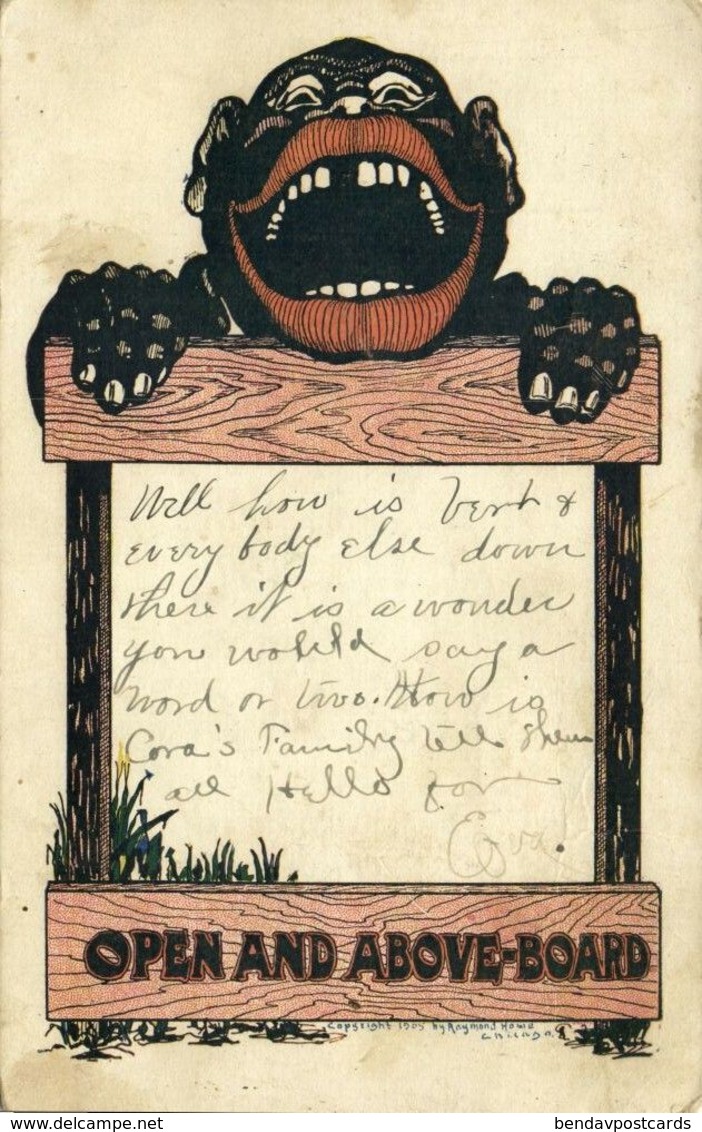 Well how is Bert &
every body else down
there it is a wonder
you wouldd say a
word or two. How is
Cora's Family tell them
all Hello for
Eva.
OPEN AND ABOVE-BOARD
Copyright 1905 by Raymond Howe
Chicago.
delcampe.net
bendavpostcards